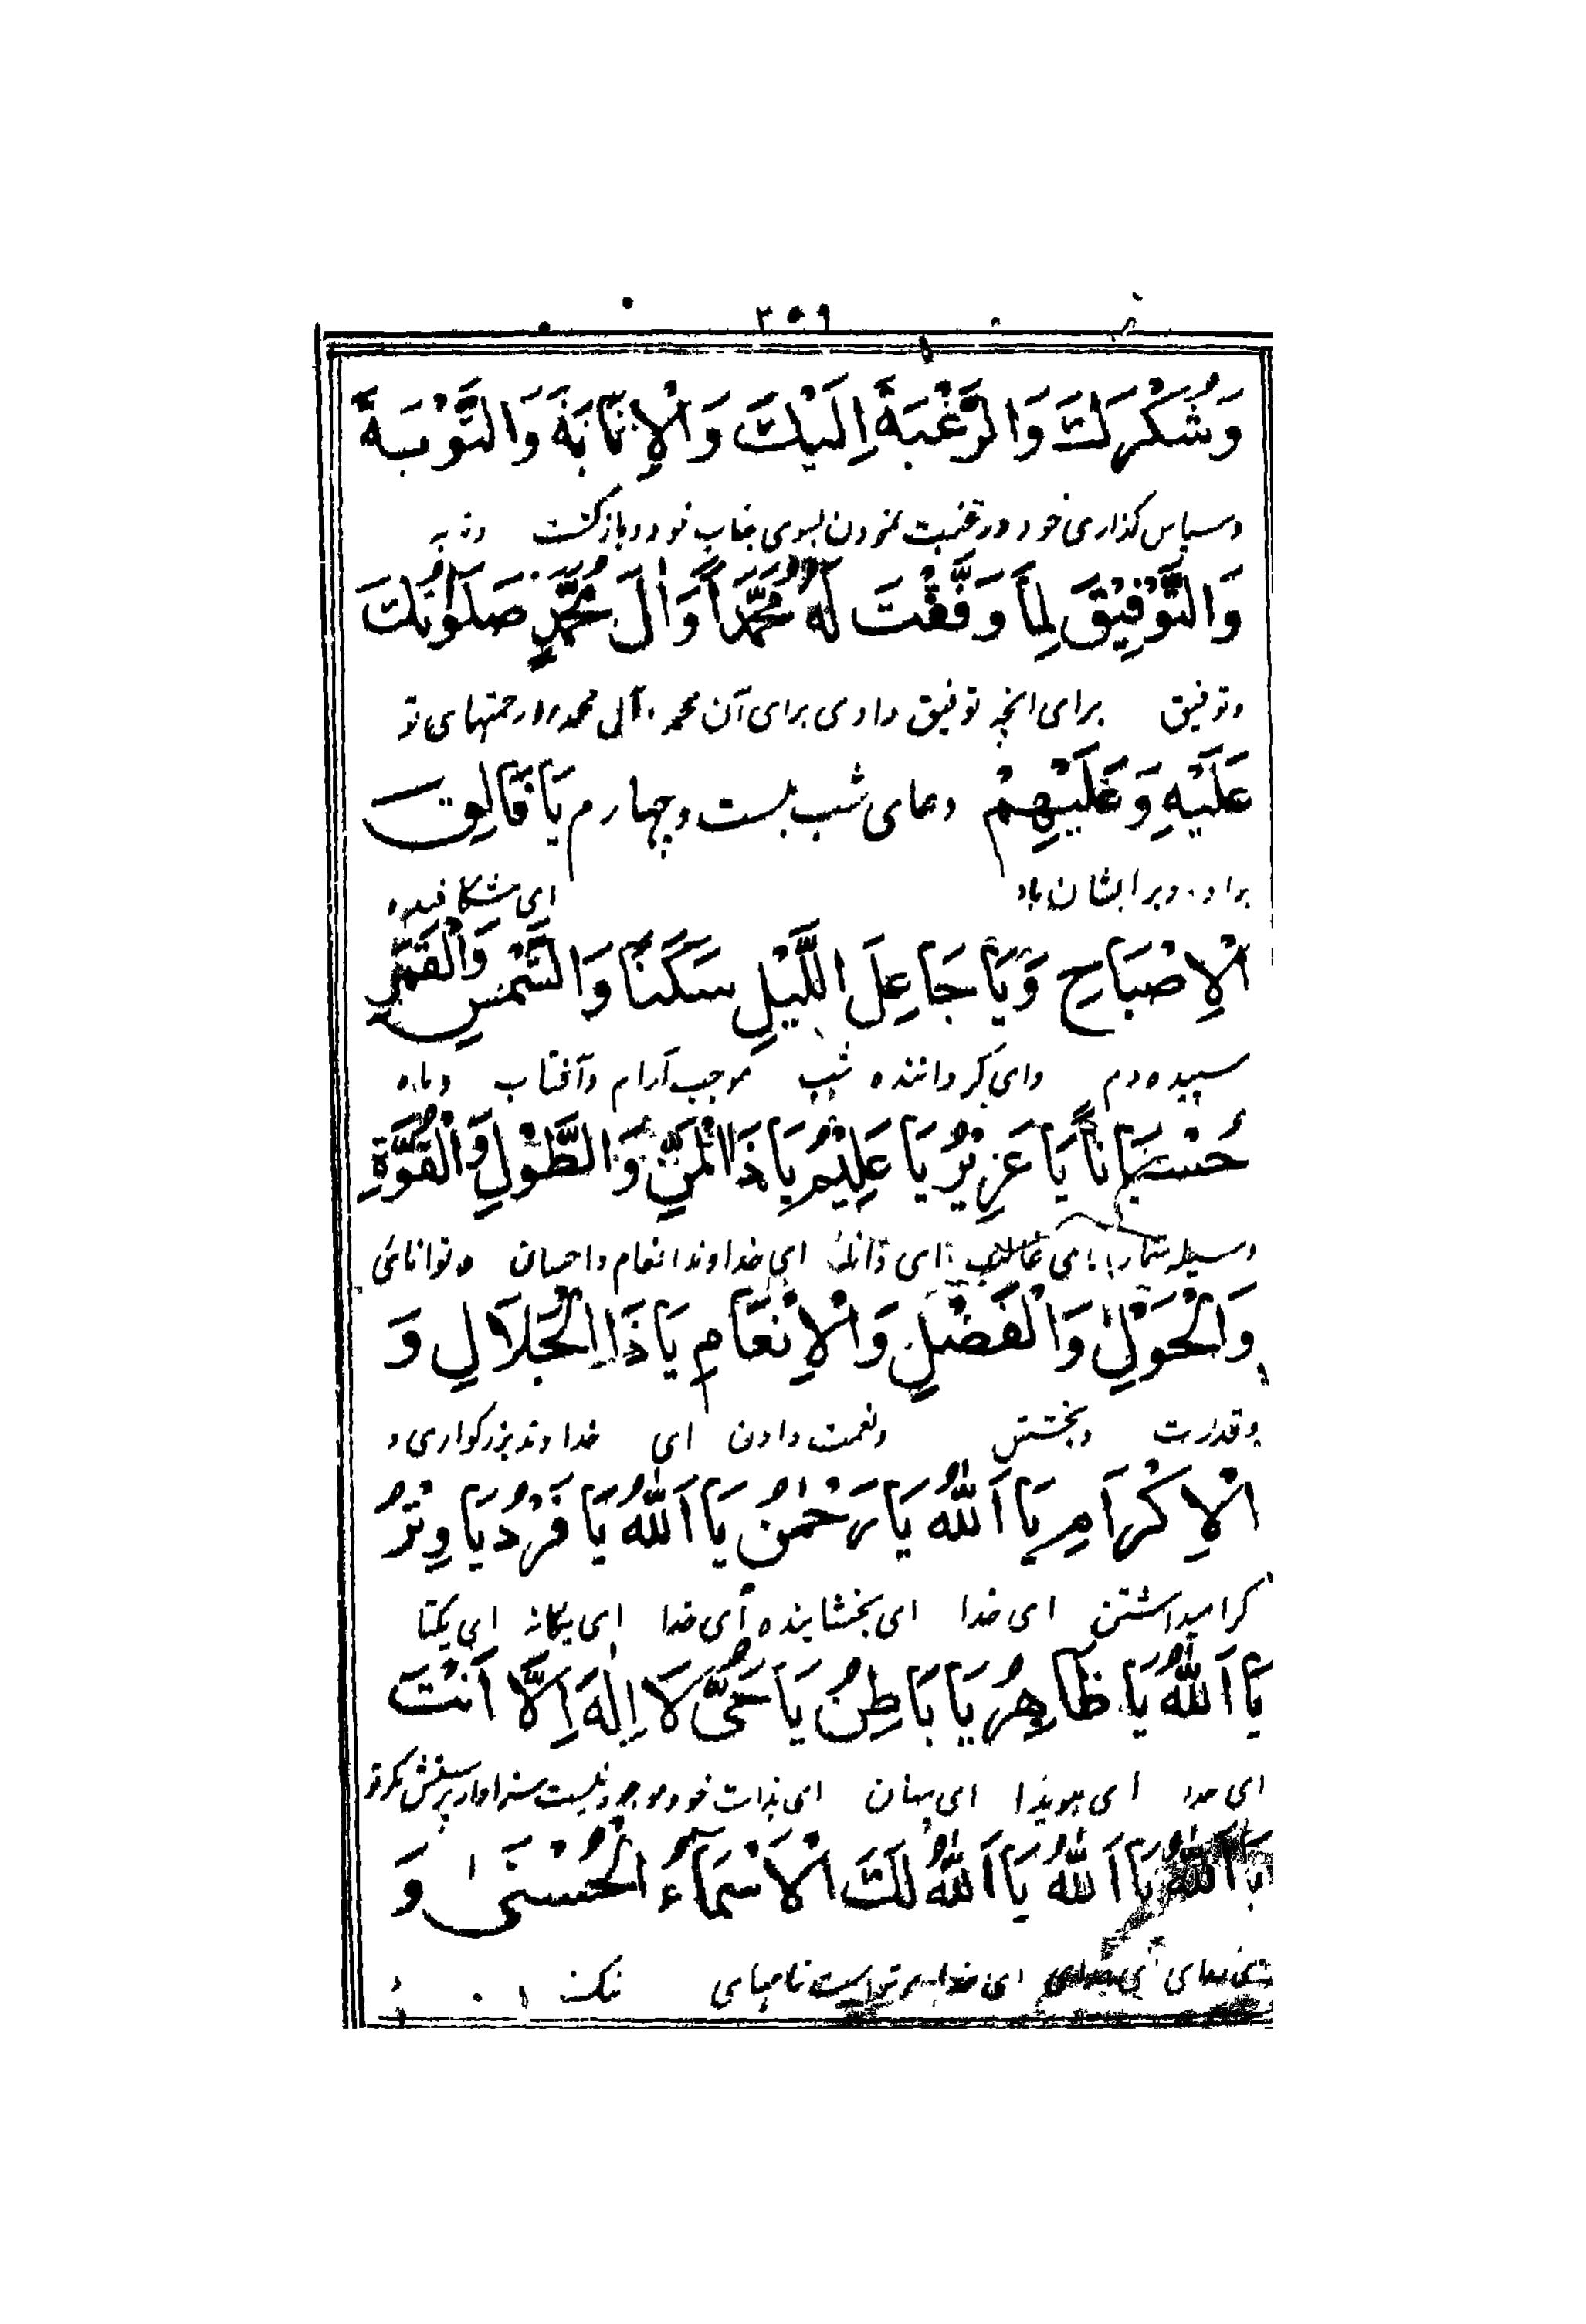 ۳۵۹
وَشُكْرَكَ وَالرَّغْبَةَ اِلَيْكَ وَالْاِنَابَةَ وَالتَّوْبَةَ
وسپاس گذاری خود ورغبت نمودن بسوی جناب خود وبازگشت وتوبه
وَالتَّوْفِيْقَ لِمَا وَفَّقْتَ لَهُ مُحَمَّدًا وَاٰلَ مُحَمَّدٍ صَلَوٰتُكَ
وتوفیق برای انچه توفیق دادی برای آن محمد وآل محمد را رحمتهای تو
عَلَيْهِ وَعَلَيْهِمْ دعای شب بست وچهارم يَا فَالِقَ
براو وبرایشان باد ای شکافنده
الْاِصْبَاحِ وَيَا جَاعِلَ اللَّيْلِ سَكَنًا وَالشَّمْسِ وَالْقَمَرِ
سپیده دم وای گرداننده شب موجب آرام وآفتاب وماه
حُسْبَانًا يَا عَزِيْزُ يَا عَلِيْمُ يَا ذَا الْمَنِّ وَالطَّوْلِ وَالْقُوَّةِ
وسیله شمار ای غالب ای دانا ای خداوند انعام واحسان وتوانائی
وَالْحَوْلِ وَالْفَضْلِ وَالْاِنْعَامِ يَا ذَا الْجَلَالِ وَ
وقدرت وبخشش ونعمت دادن ای خداوند بزرگواری و
الْاِكْرَامِ يَا اَللّٰهُ يَا رَحْمٰنُ يَا اَللّٰهُ يَا فَرْدُ يَا وِتْرُ
گرامیداشتن ای خدا ای بخشاینده ای خدا ای یگانه ای یکتا
يَا اَللّٰهُ يَا ظَاهِرُ يَا بَاطِنُ يَا حَيُّ لَا اِلٰهَ اِلَّا اَنْتَ
ای خدا ای هویدا ای پنهان ای بذات خود موجود نیست سزاوار پرستش مگر تو
يَا اَللّٰهُ يَا اَللّٰهُ يَا اَللّٰهُ لَكَ الْاَسْمَاءُ الْحُسْنٰى وَ
ای خدای ای خدای ای خدا مر تراست نامهای نیک